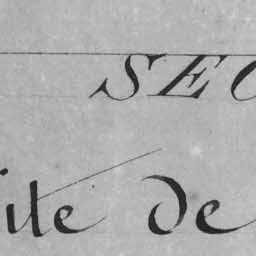 SEC
ite de